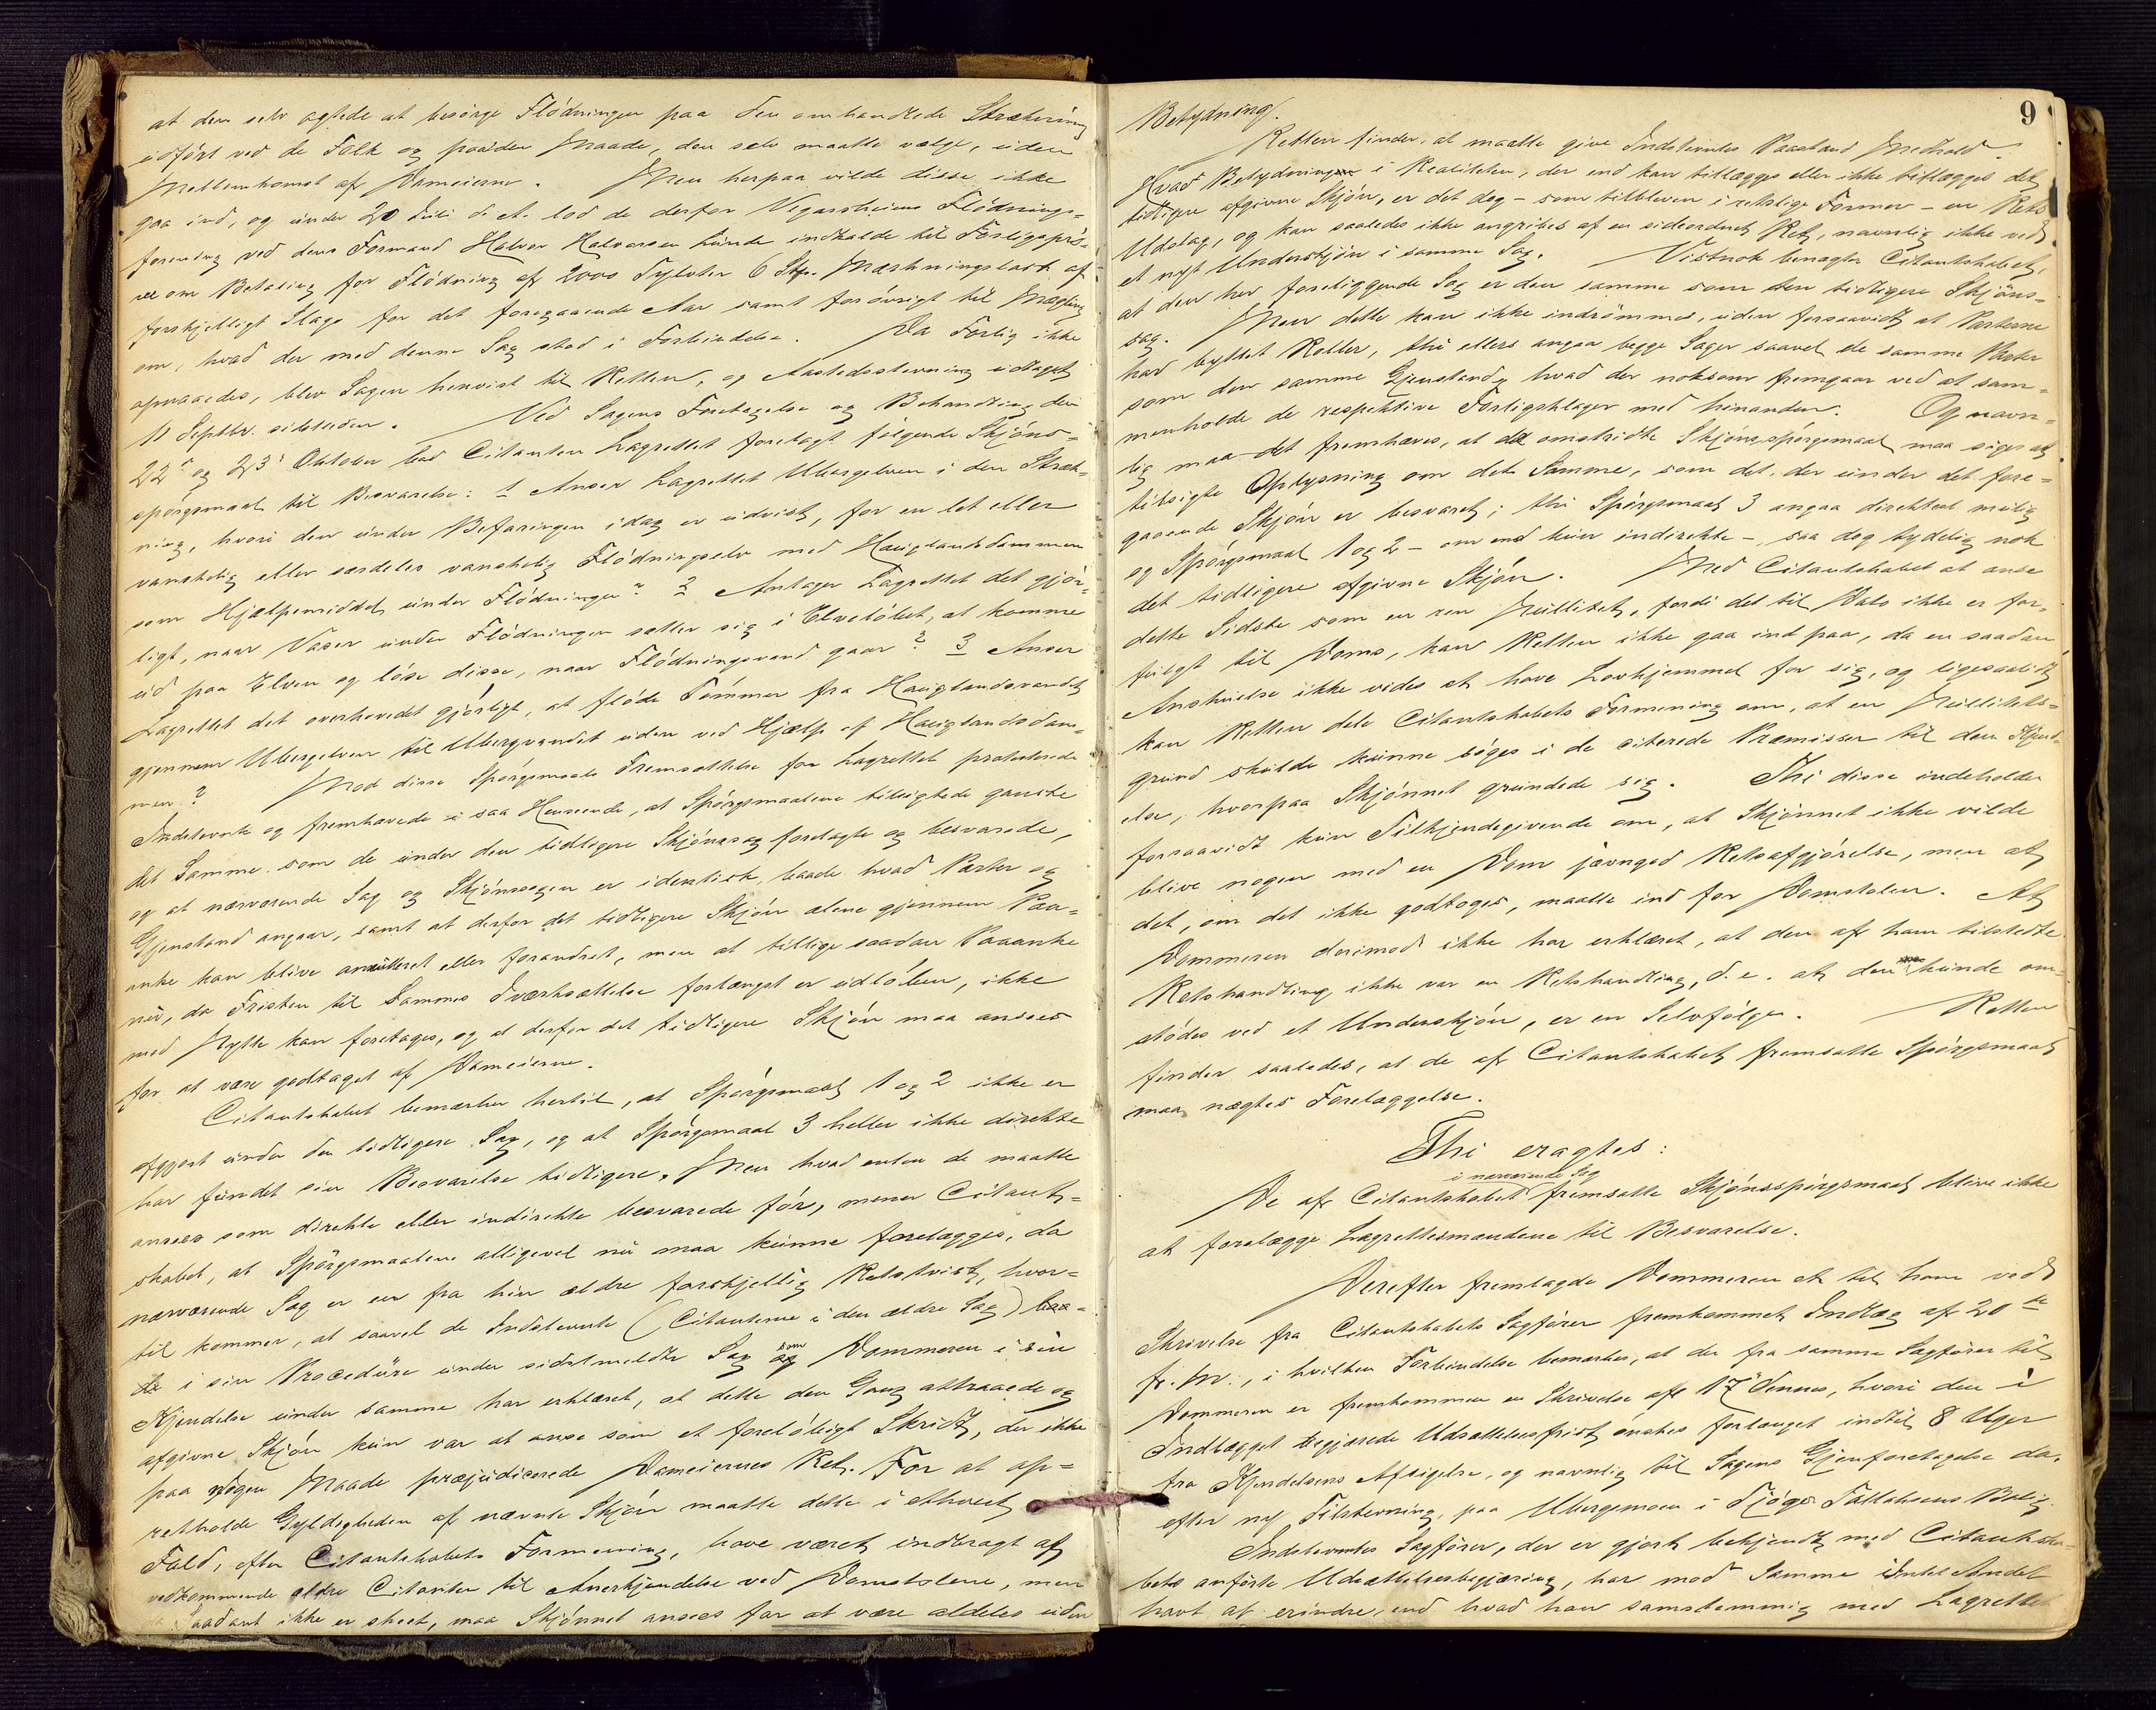 at den selv agtede at besørge Flødningen paa den omhandlede Strækning
udført ved de Folk og paa den Maade, den selv maatte vælge, uden
Mellemkomst af Dameierne. Men herpaa vilde disse ikke
gaa ind, og under 20 Juli d. A. lod de derfor Vegarsheiens Flødnings-
forening ved dens Formand Halvor Halvorsen Lunde indkalde til Forligsprø-
ve om Betaling for Flødning af 2000 Tylvter 6 Stk. Mærkningslast af
forskjelligt Slags for det foregaaende Aar samt forøvrigt til Mægling
om, hvad der med denne Sag stod i Forbindelse. Da Forlig ikke
opnaaedes, blev Sagen henvist til Retten, og Aastedsstevning udtaget
11 Septbr. sidstleden. Ved Sagens Foretagelse og Behandling den
22de og 23de Oktober bad Citanten Lagrettet forelagt følgende Skjøns-
spørgsmaal til Besvarelse: 1 Anser Lagrettet Ubergselven i den Stræk-
ning, hvori den under Befaringen idag er udvist, for en let eller
vanskelig eller særdeles vanskelig Flødningselv med Hauglandsdammen
som Hjælpemiddel under Flødningen? 2 Antager Lagrettet det gjør-
ligt, naar Vaser under Flødningen sætter sig i Elveløbet, at komme
ud paa Elven og løse disse, naar Flødningsvand gaar? 3 Anser
Lagrettet det overhovedet gjørligt, at fløde Tømmer fra Hauglandsvandet
gjennem Ubergselven til Ubergvandet uden ved Hjælp af Hauglandsdam-
men? Mod disse Spørgsmaals Fremsættelse for Lagrettet protesterede
Indstevnte og fremhævede i saa Henseende, at Spørgsmaalene tilsigtede ganske
det Samme som de under den tidligere Skjønssag forelagte og besvarede,
og at nærværende Sag og Skjønssagen er identisk, baade hvad Parter og
Gjenstand angaar, samt at derfor det tidligere Skjøn alene gjennem Paa-
anke kan blive annulleret eller forandret, men at tillige saadan Paaanke
nu, da Fristen til Sammes Iværksættelse forlængst er udløben, ikke
med Nytte kan foretages, og at derfor det tidligere Skjøn maa ansees
for at være godtaget af Dameierne.
Citantskabet bemærker hertil, at Spørgsmaal 1 og 2 ikke er
afgjort under den tidligere Sag, og at Spørgsmaal 3 heller ikke direkte
har fundet sin Besvarelse tidligere. Men hvad enten de maatte
ansees som direkte eller indirekte besvarede før, mener Citant-
skabet, at Spørgsmaalene alligevel nu maa kunne forelægges, da
nærværende Sag er en fra hin ældre forskjellig Retstvist, hvor-
til kommer, at saavel de Indstevnte (Citanterne i den ældre Sag) baa-
de i sin Procedure under sidstmeldte Sag som Dommeren i sin
Kjendelse under samme har erklæret, at dette den Gang attraaede og
afgivne Skjøn kun var at anse som et foreløbigt Skridt, der ikke
paa nogen Maade præjudicerede Dameiernes Ret. For at op-
retholde Gyldigheden af nævnte Skjøn maatte dette i ethvert
Fald, efter Citantskabets Formening, have været indbragt af
vedkommende ældre Citanter til Anerkjendelse ved Domstolene, men
da Saadant ikke er skeet, maa Skjønnet ansees for at være aldeles uden
9
Betydning.
Retten finder, at maatte give Indstevntes Paastand Medhold.
Hvad Betydning i Realiteten, der end kan tillægges eller ikke tillægges det
tidligere afgivne Skjøn, er det dog – som tilbleven i retslige Former – en Rets
Udslag, og kan saaledes ikke angribes af en sideordnet Ret, navnlig ikke ved
et nyt Underskjøn i samme Sag. Vistnok benægter Citantskabet,
at den her foreliggende Sag er den samme som den tidligere Skjøns-
sag. Men dette kan ikke indrømmes, uden forsaavidt at Parterne
har byttet Roller, thi ellers angaa begge Sager saavel de samme Parter
som den samme Gjenstand, hvad der noksom fremgaar ved at sam-
menholde de respektive Forligsklager med hinanden. Og navn-
lig maa det fremhæves, at det omstridte Skjønsspørgsmaal maa siges at
tilsigte Oplysning om det Samme, som det, der under det fore-
gaaende Skjøn er besvaret; thi Spørgsmaal 3 angaa direktest mulig
og Spørgsmaal 1 og 2 – om end kun indirekte –, saa dog tydelig nok
det tidligere afgivne Skjøn. Med Citantskabet at anse
dette Sidste som en ren Nullitet, fordi det til Dato ikke er for-
fulgt til Doms, kan Retten ikke gaa ind paa, da en saadan
Anskuelse ikke vides at have Lovhjemmel for sig, og ligesaalidt
kan Retten dele Citantskabets Formening om, at en Nullitets-
grund skulde kunne søges i de citerede Præmisser til den Kjend-
else, hvorpaa Skjønnet grundede sig. Thi disse indeholder
forsaavidt kun Tilkjendegivende om, at Skjønnet ikke vilde
blive nogen med en Dom jævngod Retsafgjørelse, men at
det, om det ikke godtoges, maatte ind for Domstolen. At
Dommeren derimod ikke har erklæret, at den af ham tilstedte
Retshandling ikke var en Retshandling, d. e. at den kunde om-
stødes ved et Underskjøn, er en Selvfølge. Retten
finder saaledes, at de af Citantskabet fremsatte Spørgsmaal
maa nægtes Forelæggelse.
Thi eragtes:
i nærværende Sag
De af Citantskabet fremsatte Skjønsspørgsmaal blive ikke
at forelægge Lagrettesmændene til Besvarelse.
Derefter fremlagde Dommeren et til ham ved
Skrivelse fra Citantskabets Sagfører fremkommet Indlæg af 20de
f. M., i hvilken Forbindelse bemærkes, at der fra samme Sagfører til
Dommeren er fremkommen en Skrivelse af 17de Dennes, hvori den i
Indlægget begjærede Udsættelsesfrist ønskes forlænget indtil 8 Uger
fra Kjendelsens Afsigelse, og navnlig til Sagens Gjenforetagelse da,
efter ny Tilstevning, paa Ubergsmoen i Tjøgo Tallaksens Bolig.
Indstevntes Sagfører, der er gjort bekjendt med Citantska-
bets anførte Udsættelsesbegjæring, har mod Samme Intet Andet
havt at erindre, end hvad han samstemmig med Lagrettet